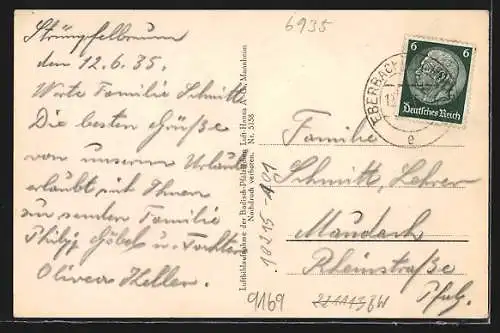 Strümpfelbrunn
den 12.6.35.
Werte Familie Schmitt
Die besten Grüße
von unserm Urlaub
erlaubt mit Ihnen
zu senden Familie
Philipp Göbel u. Tochter
Keller.
Luftbildaufnahme der Badisch-Pfälzischen Luft-Hansa A.G. Mannheim
Nachdruck verboten. Nr. 5158
6935
6 6
Deutsches Reich
EBERBACH
e
Familie
Schmitt, Lehrer
Maudach
Rheinstraße
Pfalz.
18215-A01
9169
BW